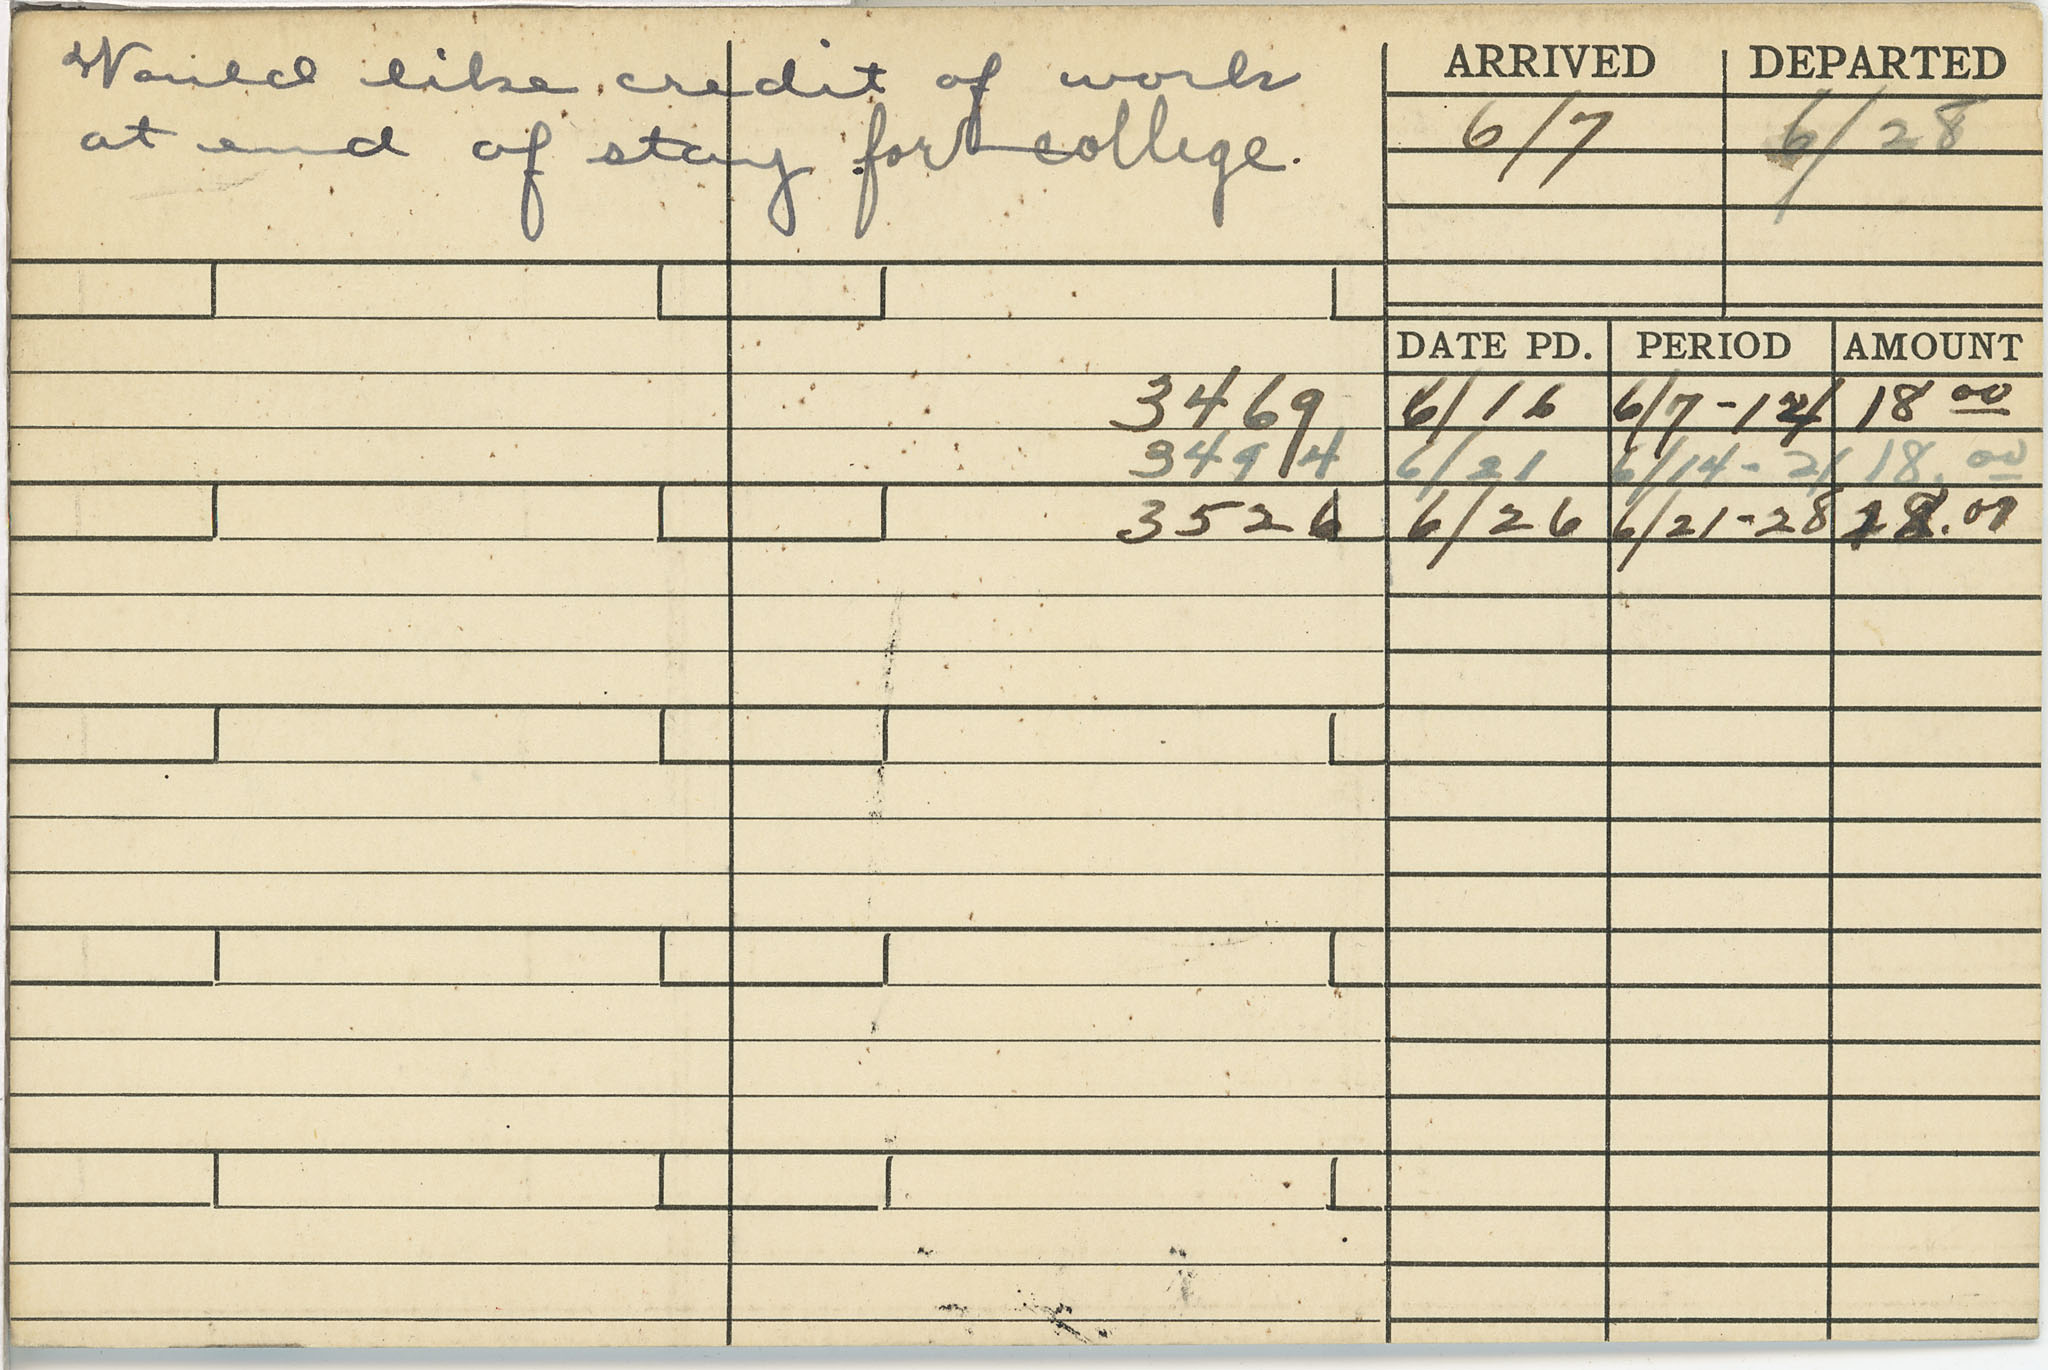 Would like credit of work
at end of stay for college.
ARRIVED DEPARTED
6/7 6/28
DATE PD. PERIOD AMOUNT
3469 6/16 6/7-14 18 00
3494 6/21 6/14-21 18.00
3526 6/26 6/21-28 18.00